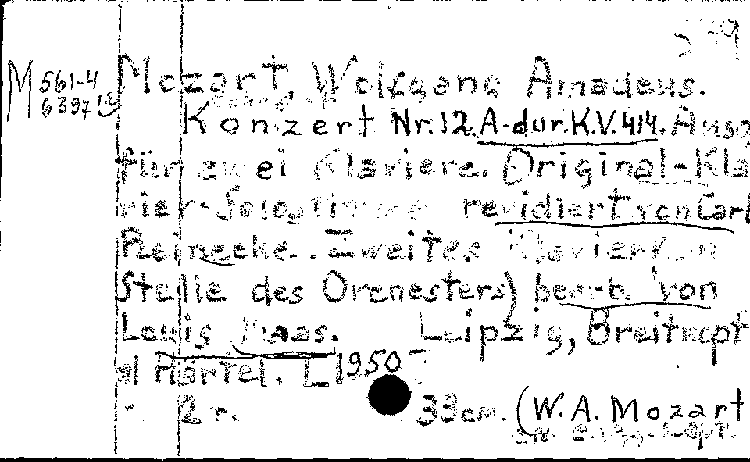 M 561-4 Mozart, Wolfgang Amadeus.
Konzert Nr.12. A-dur. K.V. 414. Ausg
für zwei Klaviere. Original-Kla
vier-Solostimme revidiert von Carl
Reinecke. Zweites Klavier
Stelle des Orchesters) bearb. von
Louis Maas. Leipzig, Breitkopf
Härtel. [1950
2 33cm. (W. A. Mozart